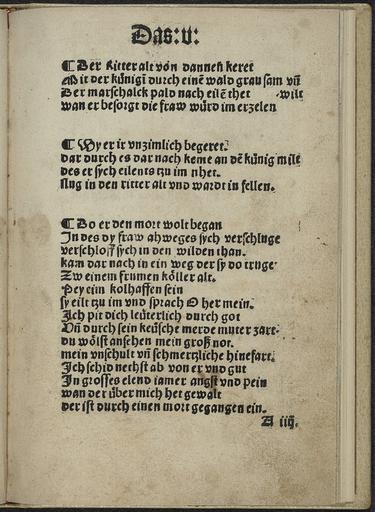 Das: v:
¶ Der Ritter alt von dannen keret
Mit der künigī durch einē wald grausam vn̄
Der marschalck pald nach eilē thet wilt
wan er besorgt die fraw würd im erzelen
¶ Wy er ir vnzimlich begeret.
dar durch es dar nach keme an dē künig milt
des er sych eilents tzu im nhet.
flug in den ritter alt vnd wardt in fellen.
¶ Do er den mort wolt began
In des dy fraw abweges sych verschluge
verschloff sych in den wilden than.
kam dar nach in ein weg der sy do truge
Zw einem frumen köller alt.
Pey eim kolhaffen sein
sy eilt tzu im vnd sprach O her mein.
Ich pit dich leüterlich durch got
Vn̄ durch sein keüsche werde muter zart.
du wölst ansehen mein groß not.
mein vnschult vn̄ schmertzliche hinefart.
Ich schid nechst ab von er vnd gut
In grosses elend iamer angst vnd pein
wan der über mich het gewalt
der ist durch einen mort gegangen ein.
A iiij.